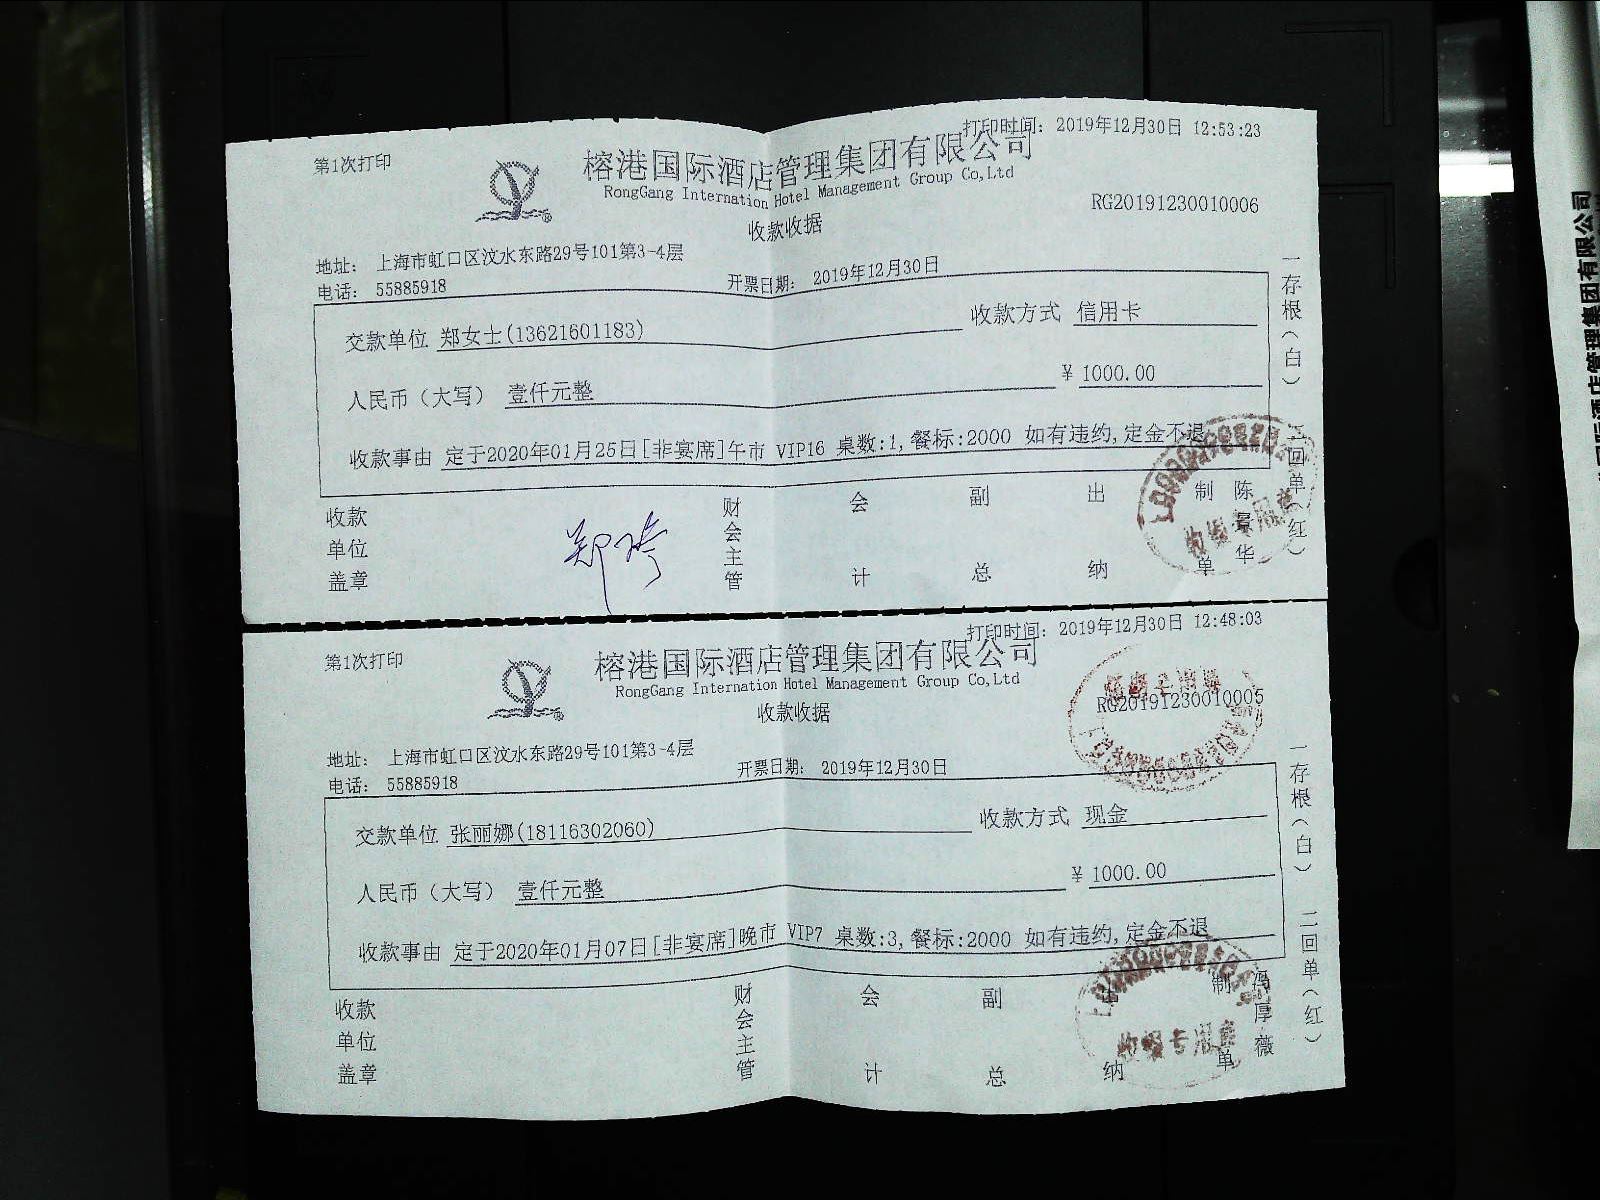 第1次打印
打印时间: 2019年12月30日 12:53:23
榕港国际酒店管理集团有限公司
RongGang Internation Hotel Management Group Co,Ltd
RG20191230010006
收款收据
地址: 上海市虹口区汶水东路29号101第3-4层
电话: 55885918
开票日期: 2019年12月30日
交款单位 郑女士(13621601183)
收款方式 信用卡
人民币（大写） 壹仟元整
¥ 1000.00
收款事由 定于2020年01月25日[非宴席]午市 VIP16 桌数:1,餐标:2000 如有违约,定金不退
一存根（白）
二回单（红）
收款单位盖章
财会主管
会计
副总
出纳
制单
陈景华
第1次打印
打印时间: 2019年12月30日 12:48:03
榕港国际酒店管理集团有限公司
RongGang Internation Hotel Management Group Co,Ltd
RG20191230010005
收款收据
地址: 上海市虹口区汶水东路29号101第3-4层
电话: 55885918
开票日期: 2019年12月30日
交款单位 张丽娜(18116302060)
收款方式 现金
人民币（大写） 壹仟元整
¥ 1000.00
收款事由 定于2020年01月07日[非宴席]晚市 VIP7 桌数:3,餐标:2000 如有违约,定金不退
一存根（白）
二回单（红）
收款单位盖章
财会主管
会计
副总
出纳
制单
冯厚薇
店管理集团有限公司